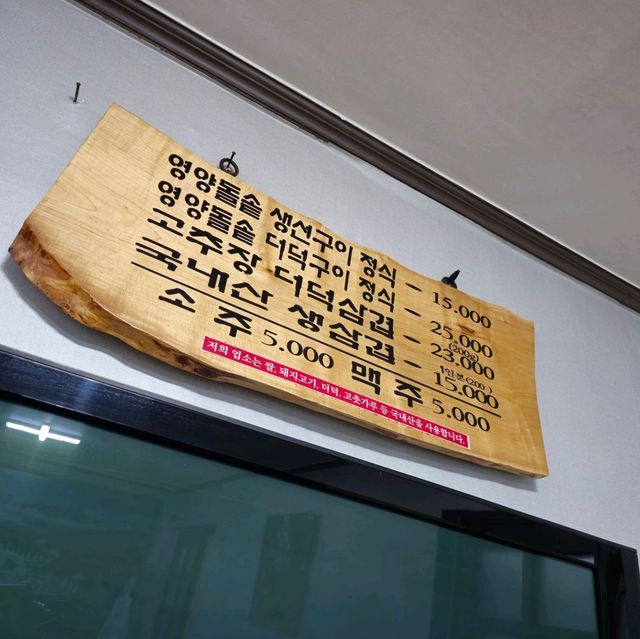 영양돌솥 생선구이 정식 - 15.000
영양돌솥 더덕구이 정식 - 25.000
고추장 더덕삼겹 - (200g) 23.000
국내산 생삼겹 - 1인분(200) 15.000
소 주 5.000 맥 주 5.000
저희 업소는 쌀, 돼지고기, 더덕, 고춧가루 등 국내산을 사용합니다.